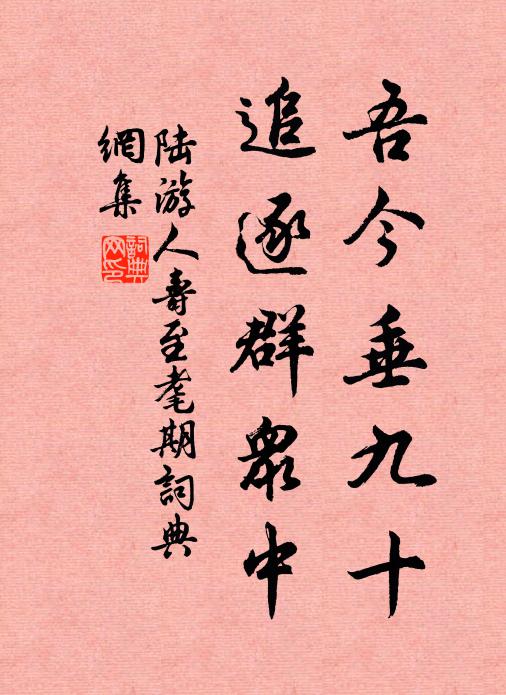 吾今垂九十
追逐群眾中
陆游人壽至耄期詞典
網集
詞典
网印